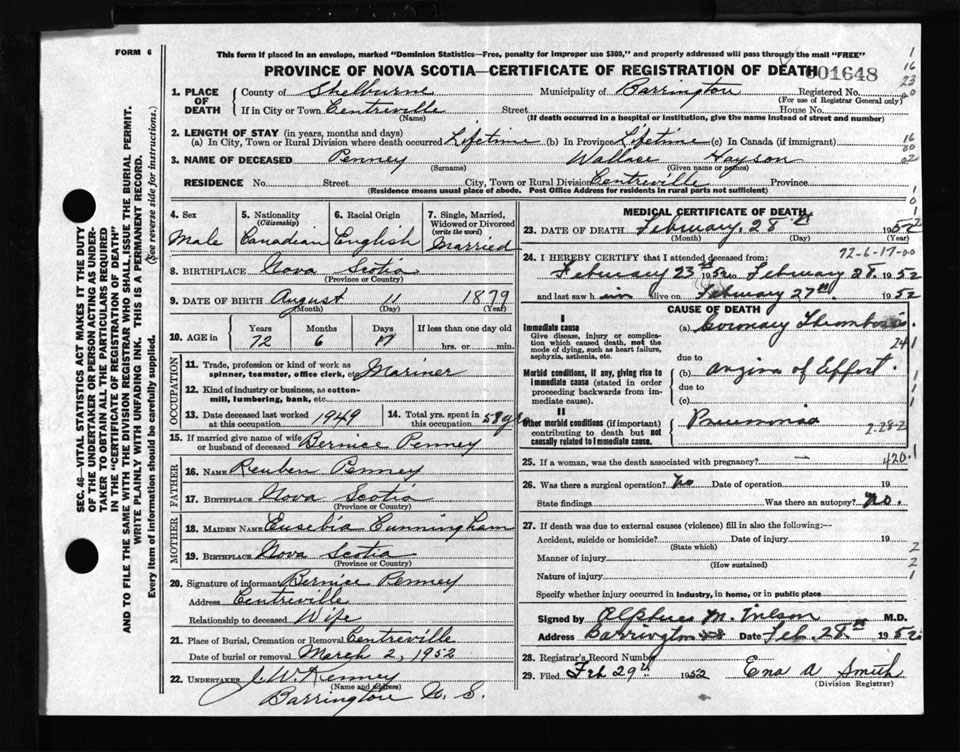 FORM 6
This form if placed in an envelope, marked "Dominion Statistics—Free, penalty for improper use $300," and properly addressed will pass through the mail "FREE"
PROVINCE OF NOVA SCOTIA—CERTIFICATE OF REGISTRATION OF DEATH 001648
1. PLACE OF DEATH County of Shelburne Municipality of Barrington Registered No.
(For use of Registrar General only)
If in City or Town Centreville Street House No.
(Name) (If death occurred in a hospital or institution, give the name instead of street and number)
2. LENGTH OF STAY (in years, months and days)
(a) In City, Town or Rural Division where death occurred Lifetime (b) In Province Lifetime (c) In Canada (if immigrant)
3. NAME OF DECEASED Penney Wallace Hayson
(Surname) (Given name or names)
RESIDENCE No. Street City, Town or Rural Division Centreville Province
(Residence means usual place of abode. Post Office Address for residents in rural parts not sufficient)
4. Sex Male
5. Nationality (Citizenship) Canadian
6. Racial Origin English
7. Single, Married, Widowed or Divorced (write the word) Married
8. BIRTHPLACE Nova Scotia
(Province or Country)
9. DATE OF BIRTH August 11 1879
(Month) (Day)
10. AGE in Years 72 Months 6 Days 17 If less than one day old hrs. or min.
OCCUPATION
11. Trade, profession or kind of work as spinner, teamster, office clerk, etc. Mariner
12. Kind of industry or business, as cotton-mill, lumbering, bank, etc.
13. Date deceased last worked at this occupation 1949
14. Total yrs. spent in this occupation 58 yrs
15. If married give name of wife or husband of deceased Bernice Penney
FATHER
16. NAME Reuben Penney
17. BIRTHPLACE Nova Scotia
(Province or Country)
MOTHER
18. MAIDEN NAME Eusebia Cunningham
19. BIRTHPLACE Nova Scotia
(Province or Country)
20. Signature of informant Bernice Penney
Address Centreville
Relationship to deceased Wife
21. Place of Burial, Cremation or Removal Centreville
Date of burial or removal March 2, 1952
22. UNDERTAKER J. W. Kenney
(Name and address)
Barrington N. S.
MEDICAL CERTIFICATE OF DEATH
23. DATE OF DEATH February, 28th 1952
(Month) (Day) (Year)
72-6-17-00
24. I HEREBY CERTIFY that I attended deceased from:
February 23rd 1952 to February 28 1952
and last saw him alive on February 27th 1952
CAUSE OF DEATH
I
Immediate cause (a) Coronary Thrombosis.
Give disease, injury or complication which caused death, not the mode of dying, such as heart failure, asphyxia, asthenia, etc.
241
due to
Morbid conditions, if any, giving rise to immediate cause (stated in order proceeding backwards from immediate cause).
(b) angina of Effort.
due to
(c)
II
Other morbid conditions (if important) contributing to death but not causally related to immediate cause.
Pneumonia
2-28-2
25. If a woman, was the death associated with pregnancy? — 420.1
26. Was there a surgical operation? No Date of operation 19
State findings Was there an autopsy? No.
27. If death was due to external causes (violence) fill in also the following:—
Accident, suicide or homicide? Date of injury 19
(State which)
Manner of injury
(How sustained)
Nature of injury
Specify whether injury occurred in industry, in home, or in public place
Signed by Alpheus M. Wilson M.D.
Address Barrington Date Feb. 28th 1952
28. Registrar's Record Number
29. Filed Feb 29th 1952 Ena A Smith
(Division Registrar)
SEC. 46—VITAL STATISTICS ACT MAKES IT THE DUTY
OF THE UNDERTAKER OR PERSON ACTING AS UNDER-
TAKER TO OBTAIN ALL THE PARTICULARS REQUIRED
IN THE "CERTIFICATE OF REGISTRATION OF DEATH"
AND TO FILE THE SAME WITH THE DIVISION REGISTRAR WHO SHALL ISSUE THE BURIAL PERMIT.
WRITE PLAINLY WITH UNFADING INK. THIS IS A PERMANENT RECORD.
Every item of information should be carefully supplied. (See reverse side for instructions.)